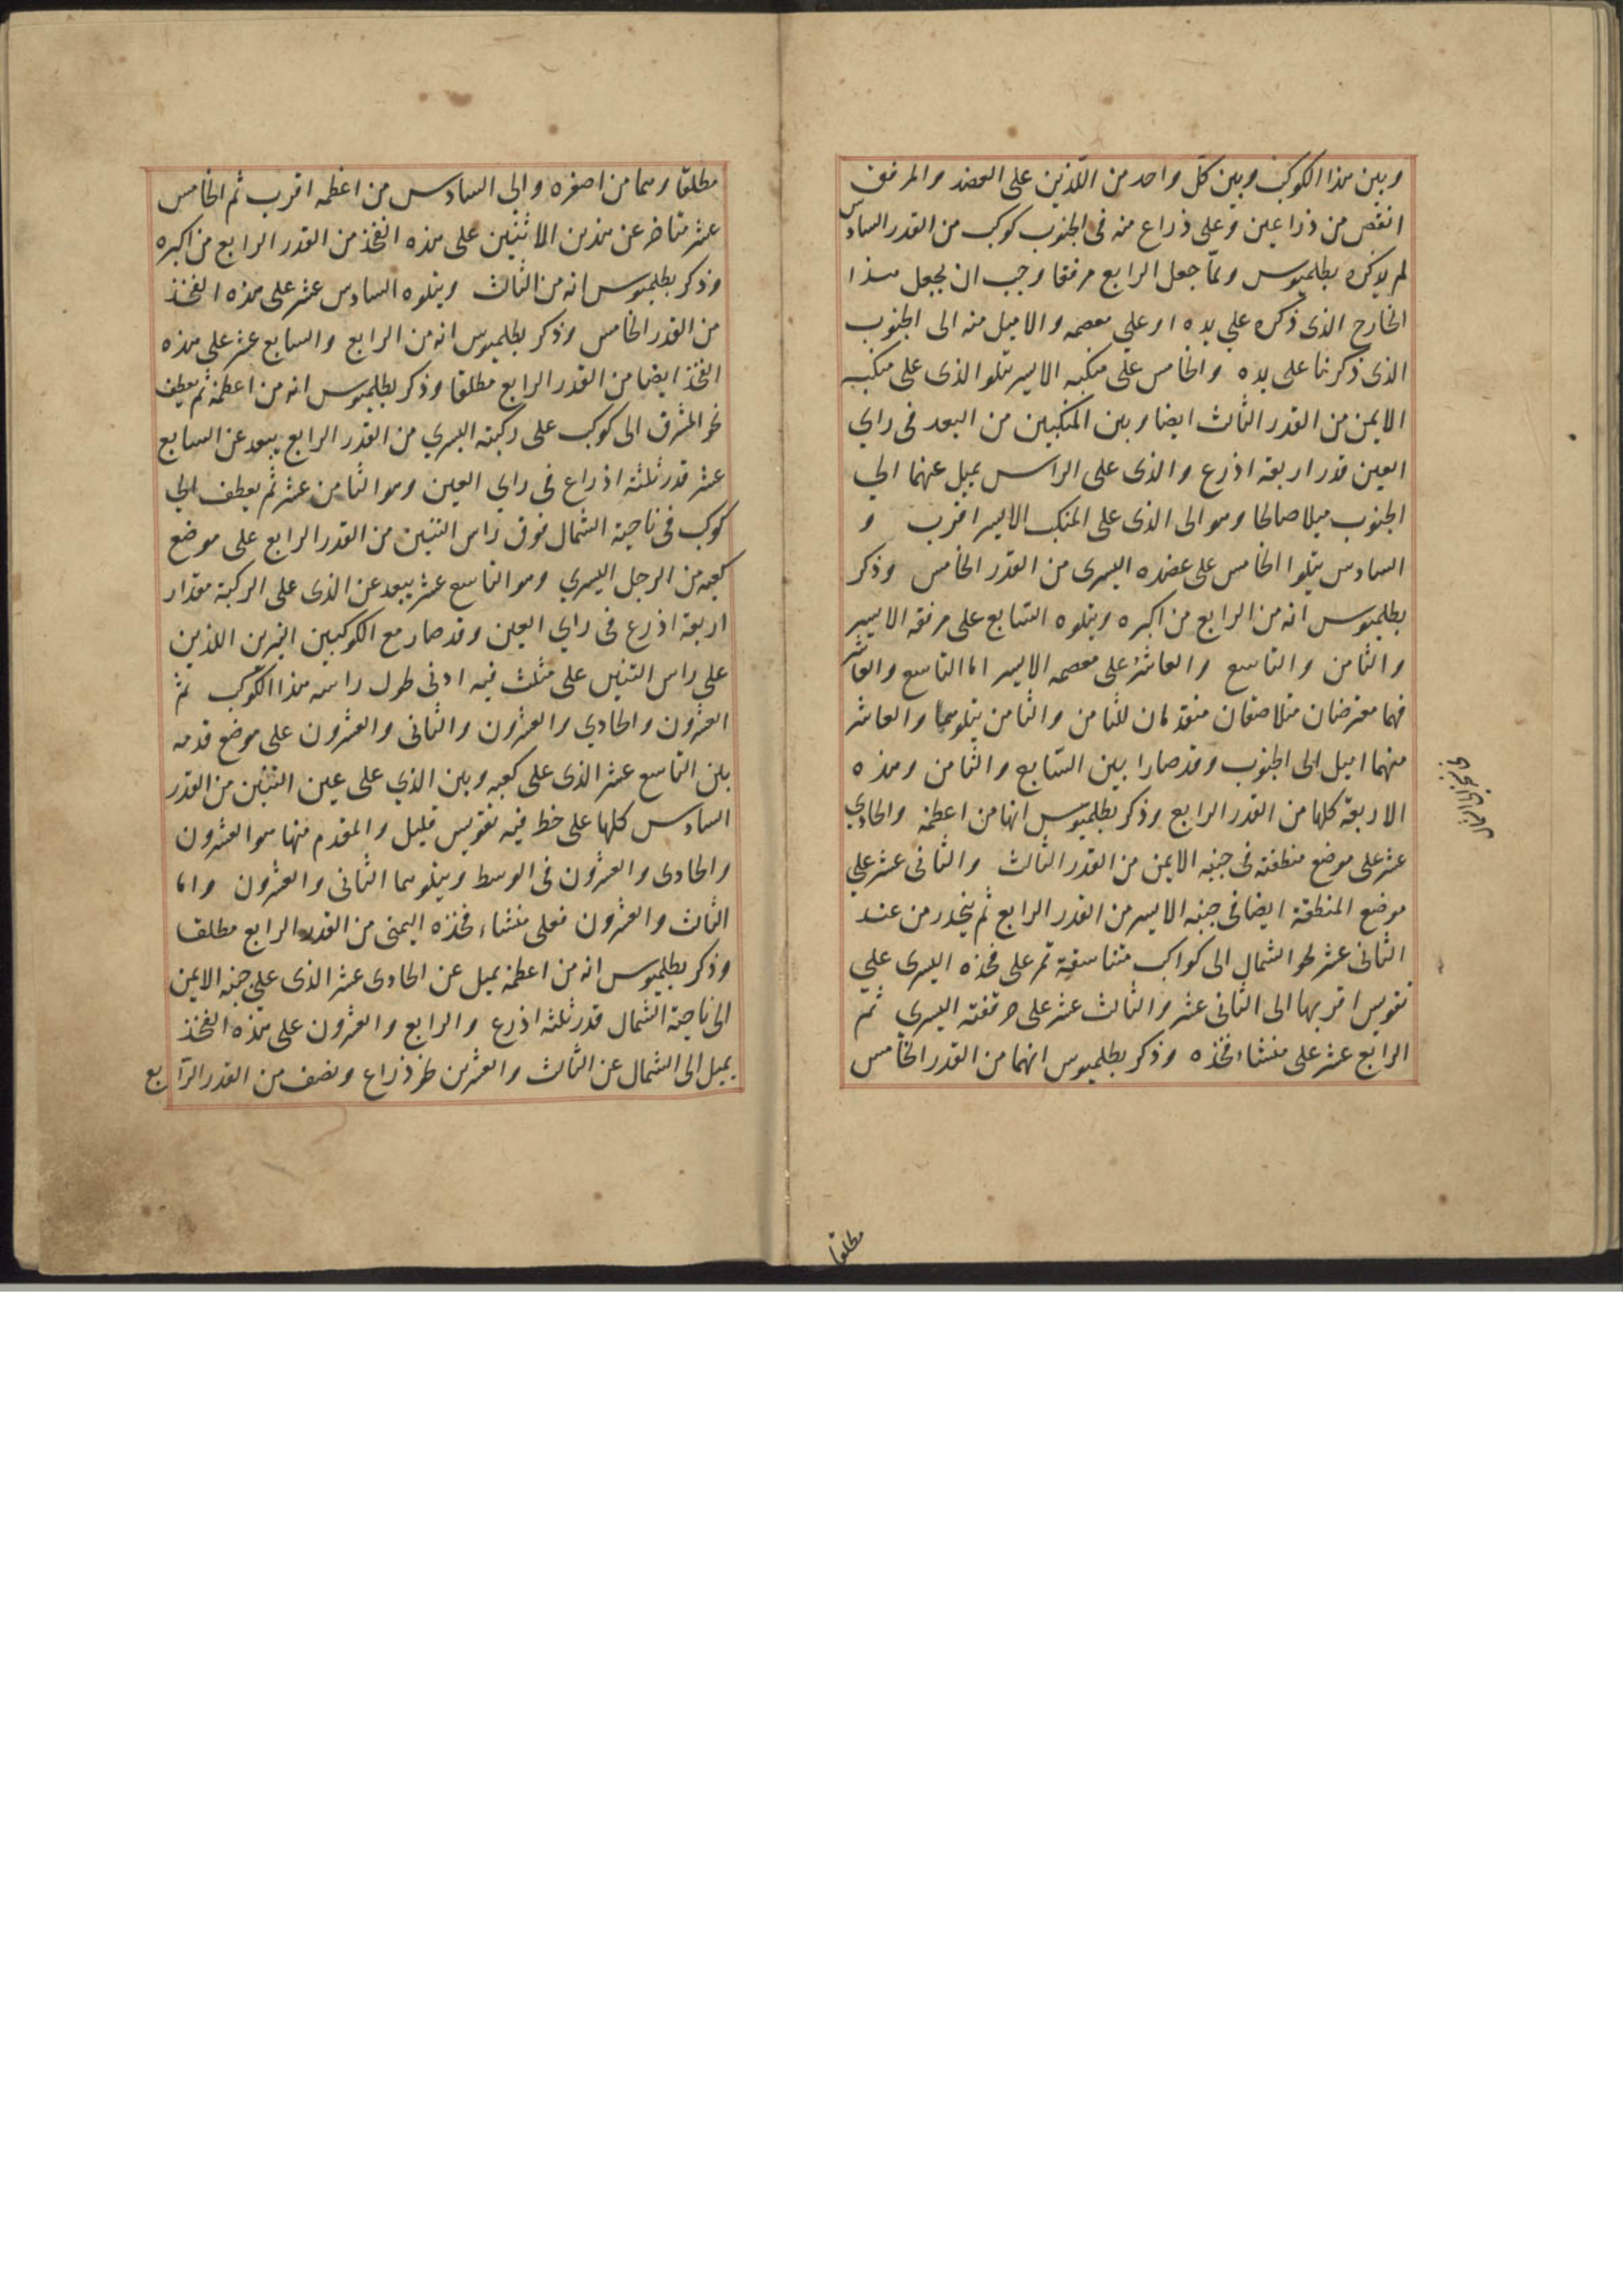 وبين هذا الكوكب وبين كل واحد من اللذين على العضد والمرفق
انقص من ذراعين وعلى ذراع منه فى الجنوب كوكب من القدر السادس
لم يذكره بطلميوس ولما جعل الرابع مرفقا وجب ان يجعل هذا
الخارج الذى ذكره على يده او على معصمه والاميل منه الى الجنوب
الذى ذكرنا على يده والخامس على منكبه الايسر يتلو الذى على منكبه
الايمن من القدر الثالث ايضا وبين المنكبين من البعد فى راي
العين قدر اربعة اذرع والذى على الراس يميل عنهما الي
الجنوب ميلا صالحا وهو الى الذى على المنكب الايسر اقرب و
السادس يتلوا الخامس على عضده اليسرى من القدر الخامس وذكر
بطلميوس انه من الرابع من اكبره ويتلوه السابع على مرفقه الايسر
والثامن والتاسع والعاشر على معصمه الايسر اما التاسع والعاشر
فهما معترضان متلاصقان متقدمان للثامن والثامن يتلوهما والعاشر
منهما اميل الى الجنوب وقد صارا بين السابع والثامن وهذه
الاربعة كلها من القدر الرابع وذكر بطلميوس انها من اعظمه والحادي
عشر على موضع منطقته فى جنبه الايمن من القدر الثالث والثانى عشر علي
موضع المنطقة ايضا فى جنبه الايسر من القدر الرابع ثم ينحدر من عند
الثانى عشر نحو الشمال الى كواكب متناسقة تمر على فخذه اليسرى علي
تقويس اقربها الى الثانى عشر والثالث عشر على حرقفته اليسري ثم
الرابع عشر على منشاء فخذه وذكر بطلميوس انهما من القدر الخامس
مطلقا
مطلقا وهما من اصغره والى السادس من اعظمه اقرب ثم الخامس
عشر متاخر عن هذين الاثنين على هذه الفخذ من القدر الرابع من اكبره
وذكر بطلميوس انه من الثالث ويتلوه السادس عشر على هذه الفخذ
من القدر الخامس وذكر بطلميوس انه من الرابع والسابع عشر على هذه
الفخذ ايضا من القدر الرابع مطلقا وذكر بطلميوس انه من اعظمه ثم يعطف
نحو المشرق الى كوكب على ركبته اليسري من القدر الرابع يبعد عن السابع
عشر قدر ثلثة اذراع فى راي العين وهو الثامن عشر ثم يعطف الي
كوكب فى ناحية الشمال فوق راس التنين من القدر الرابع على موضع
كعبه من الرجل اليسري وهو التاسع عشر يبعد عن الذى على الركبة مقدار
اربعة اذرع فى راي العين وقد صار مع الكوكبين النيرين اللذين
على راس التنين على مثلث فيه ادنى طول راسه هذا الكوكب ثم
العشرون والحادي والعشرون والثانى والعشرون على موضع قدمه
بين التاسع عشر الذى على كعبه وبين الذي على عين التنين من القدر
السادس كلها على خط فيه تقويس قليل والمقدم منها هو العشرون
والحادى والعشرون فى الوسط ويتلوهما الثانى والعشرون واما
الثالث والعشرون فعلى منشاء فخذه اليمنى من القدر الرابع مطلقا
وذكر بطلميوس انه من اعظمه يميل عن الحادى عشر الذى على جنبه الايمن
الى ناحية الشمال قدر ثلثه اذرع والرابع والعشرون على هذه الفخذ
يميل الى الشمال عن الثالث والعشرين نحو ذراع ونصف من القدر الرابع